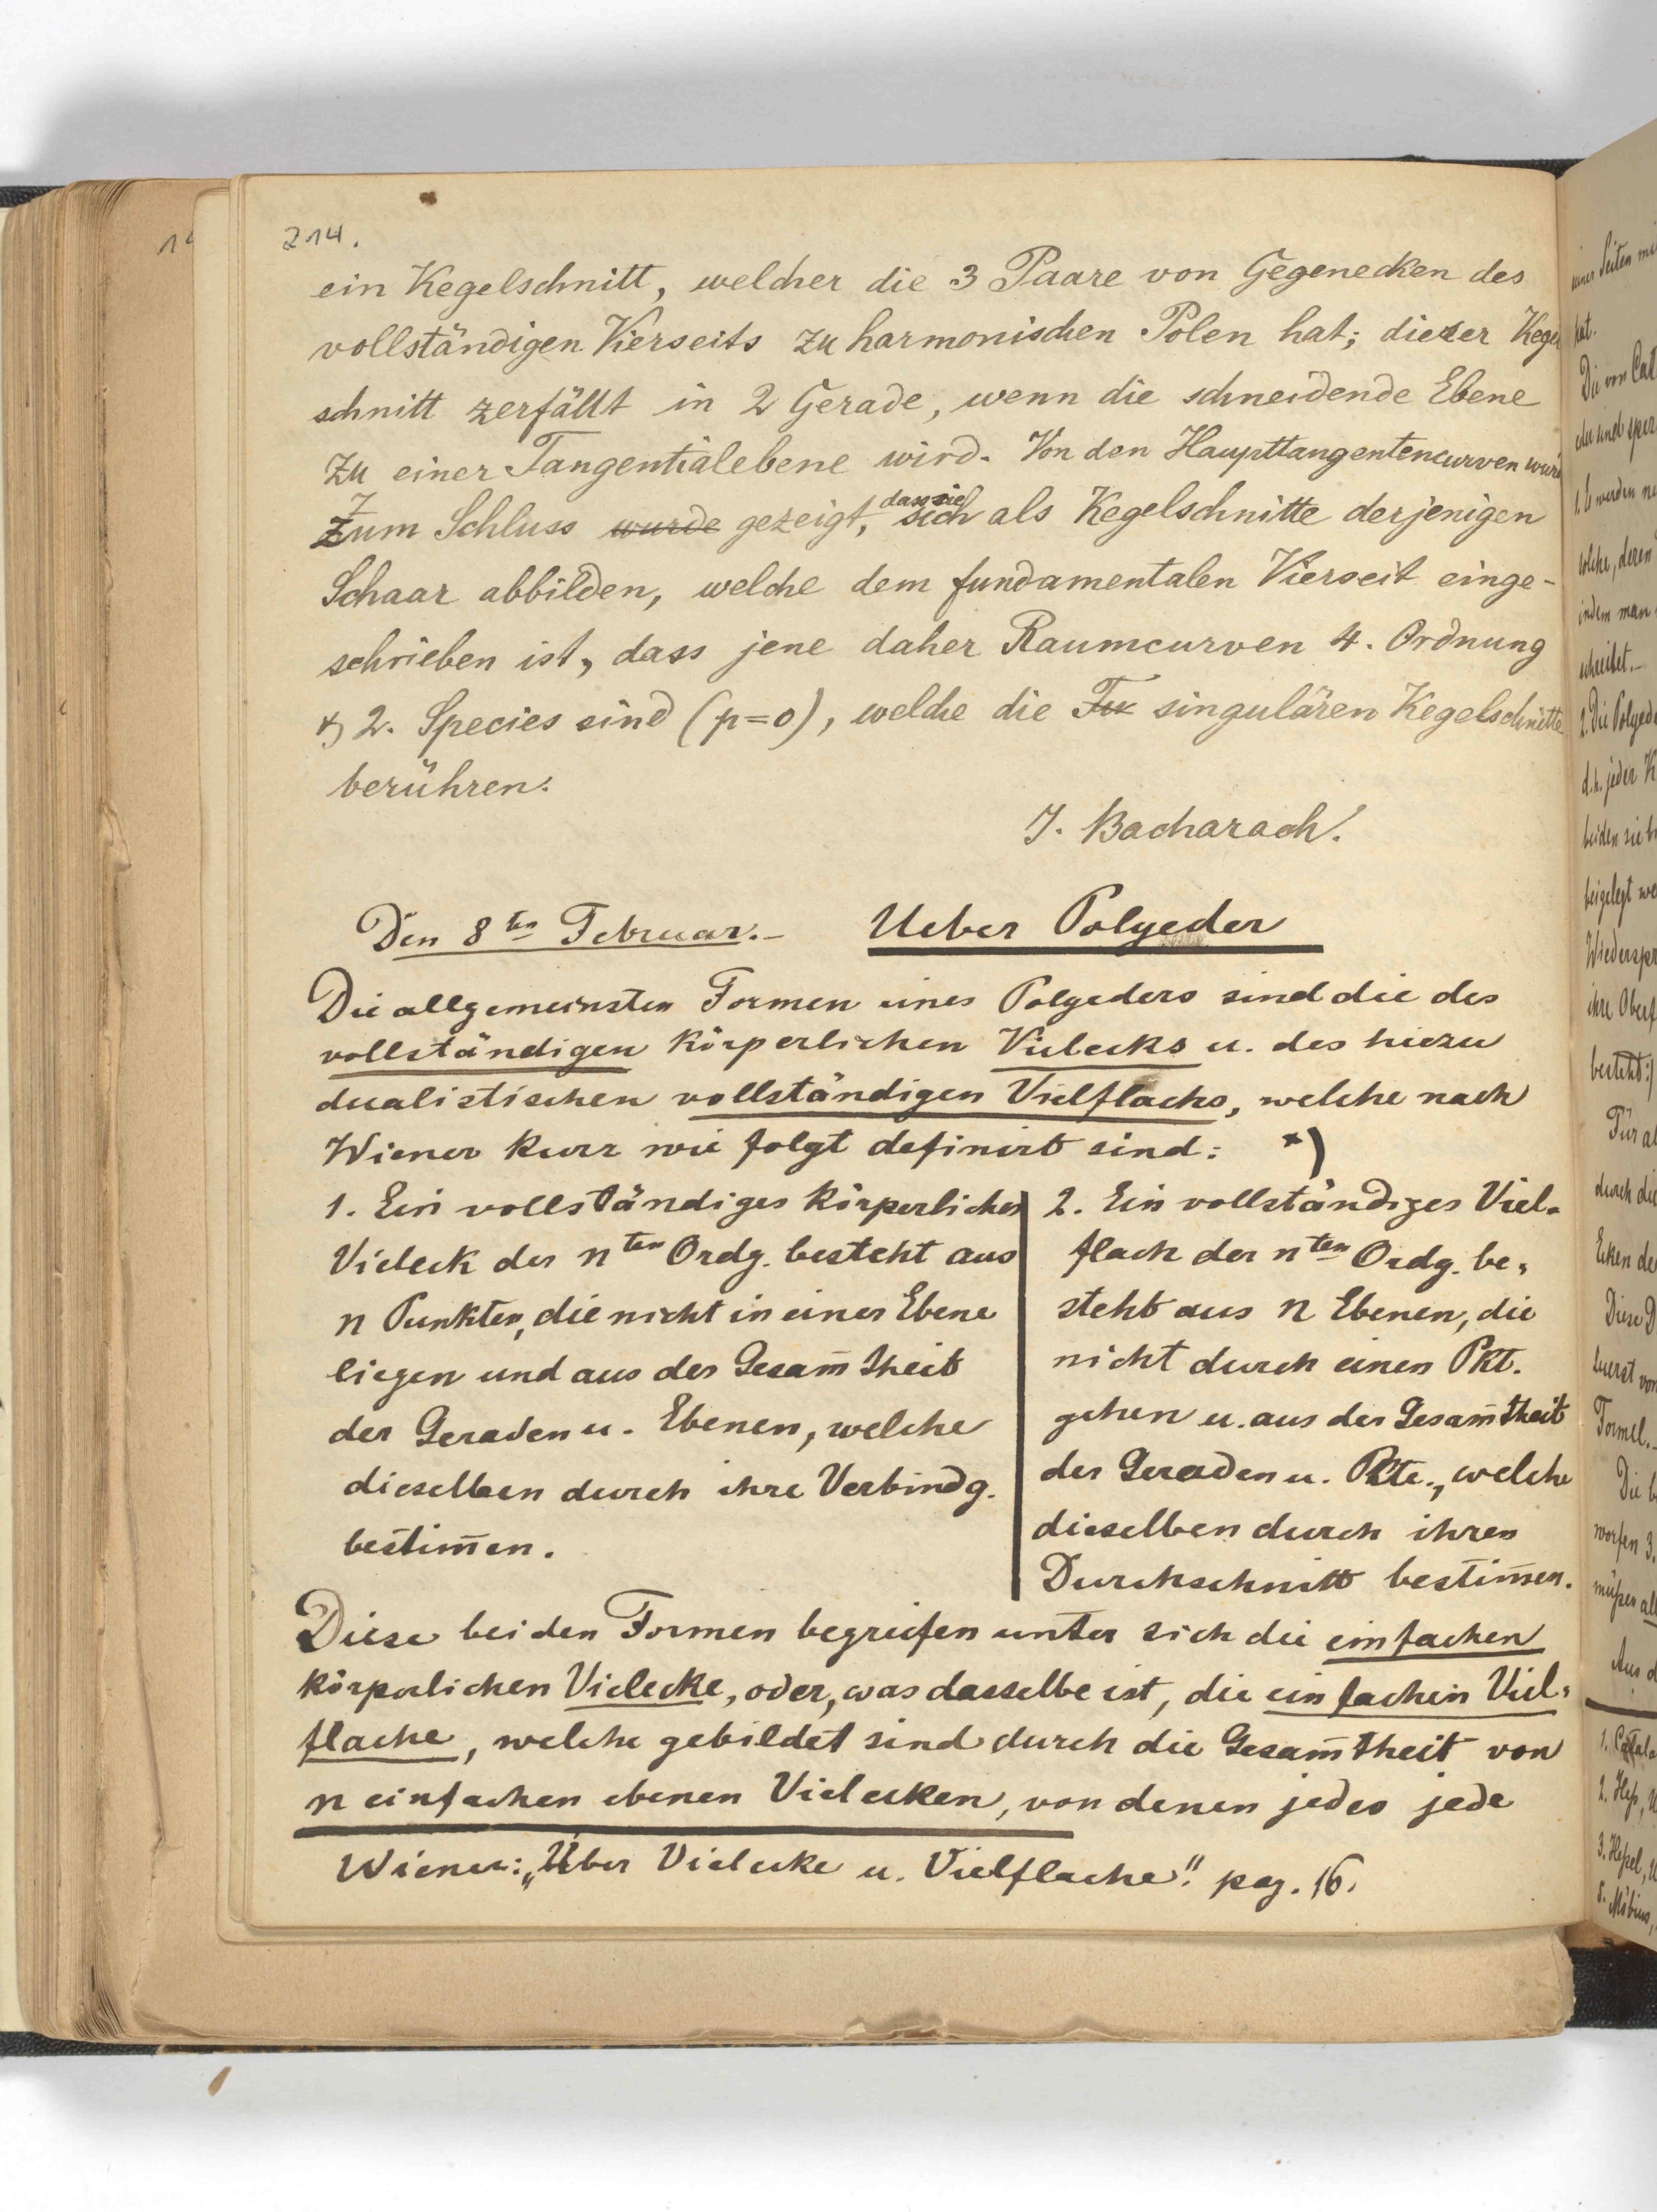 214.
ein Kegelschnitt, welcher die 3 Paare von Gegenecken des
vollständigen Vierseits zu harmonischen Polen hat; dieser Kegel
schnitt zerfällt in 2 Gerade, wenn die schneidende Ebene
zu einer Tangentialebene wird. Von den Haupttangentencurven wurde
dass sie
Zum Schluss wurde gezeigt, sich als Kegelschnitte derjenigen
Schaar abbilden, welche dem fundamentalen Vierseit einge-
schrieben ist, dass jene daher Raumcurven 4. Ordnung
& 2. Species sind (p=0), welche die singulären Kegelschnitte
berühren.
J. Bacharach.
Den 8ten Februar.- Ueber Polyeder
Die allgemeinsten Formen eines Polyeders sind die des
vollständigen körperlichen Vielecks u. des hiezu
dualistischen vollständigen Vielflachs, welche nach
Wiener kurz wie folgt definirt sind: *)
1. Ein vollständiges körperliches
Vieleck der nten Ordg. besteht aus
n Punkten, die nicht in einer Ebene
liegen und aus der Gesam̅theit
der Geraden u. Ebenen, welche
dieselben durch ihre Verbindg.
bestim̅en.
2. Ein vollständiges Viel-
flach der nten Ordg. be-
steht aus n Ebenen, die
nicht durch einen Pkt.
gehen u. aus der Gesam̅theit
der Geraden u. Pkte., welche
dieselben durch ihren
Durchschnitt bestim̅en.
Diese beiden Formen begreifen unter sich die einfachen
körperlichen Vielecke, oder, was dasselbe ist, die einfachen Viel-
flache, welche gebildet sind durch die Gesam̅theit von
n einfachen ebenen Vielecken, von denen jedes jede
Wiener: „Über Vielecke u. Vielflache". pag. 16.